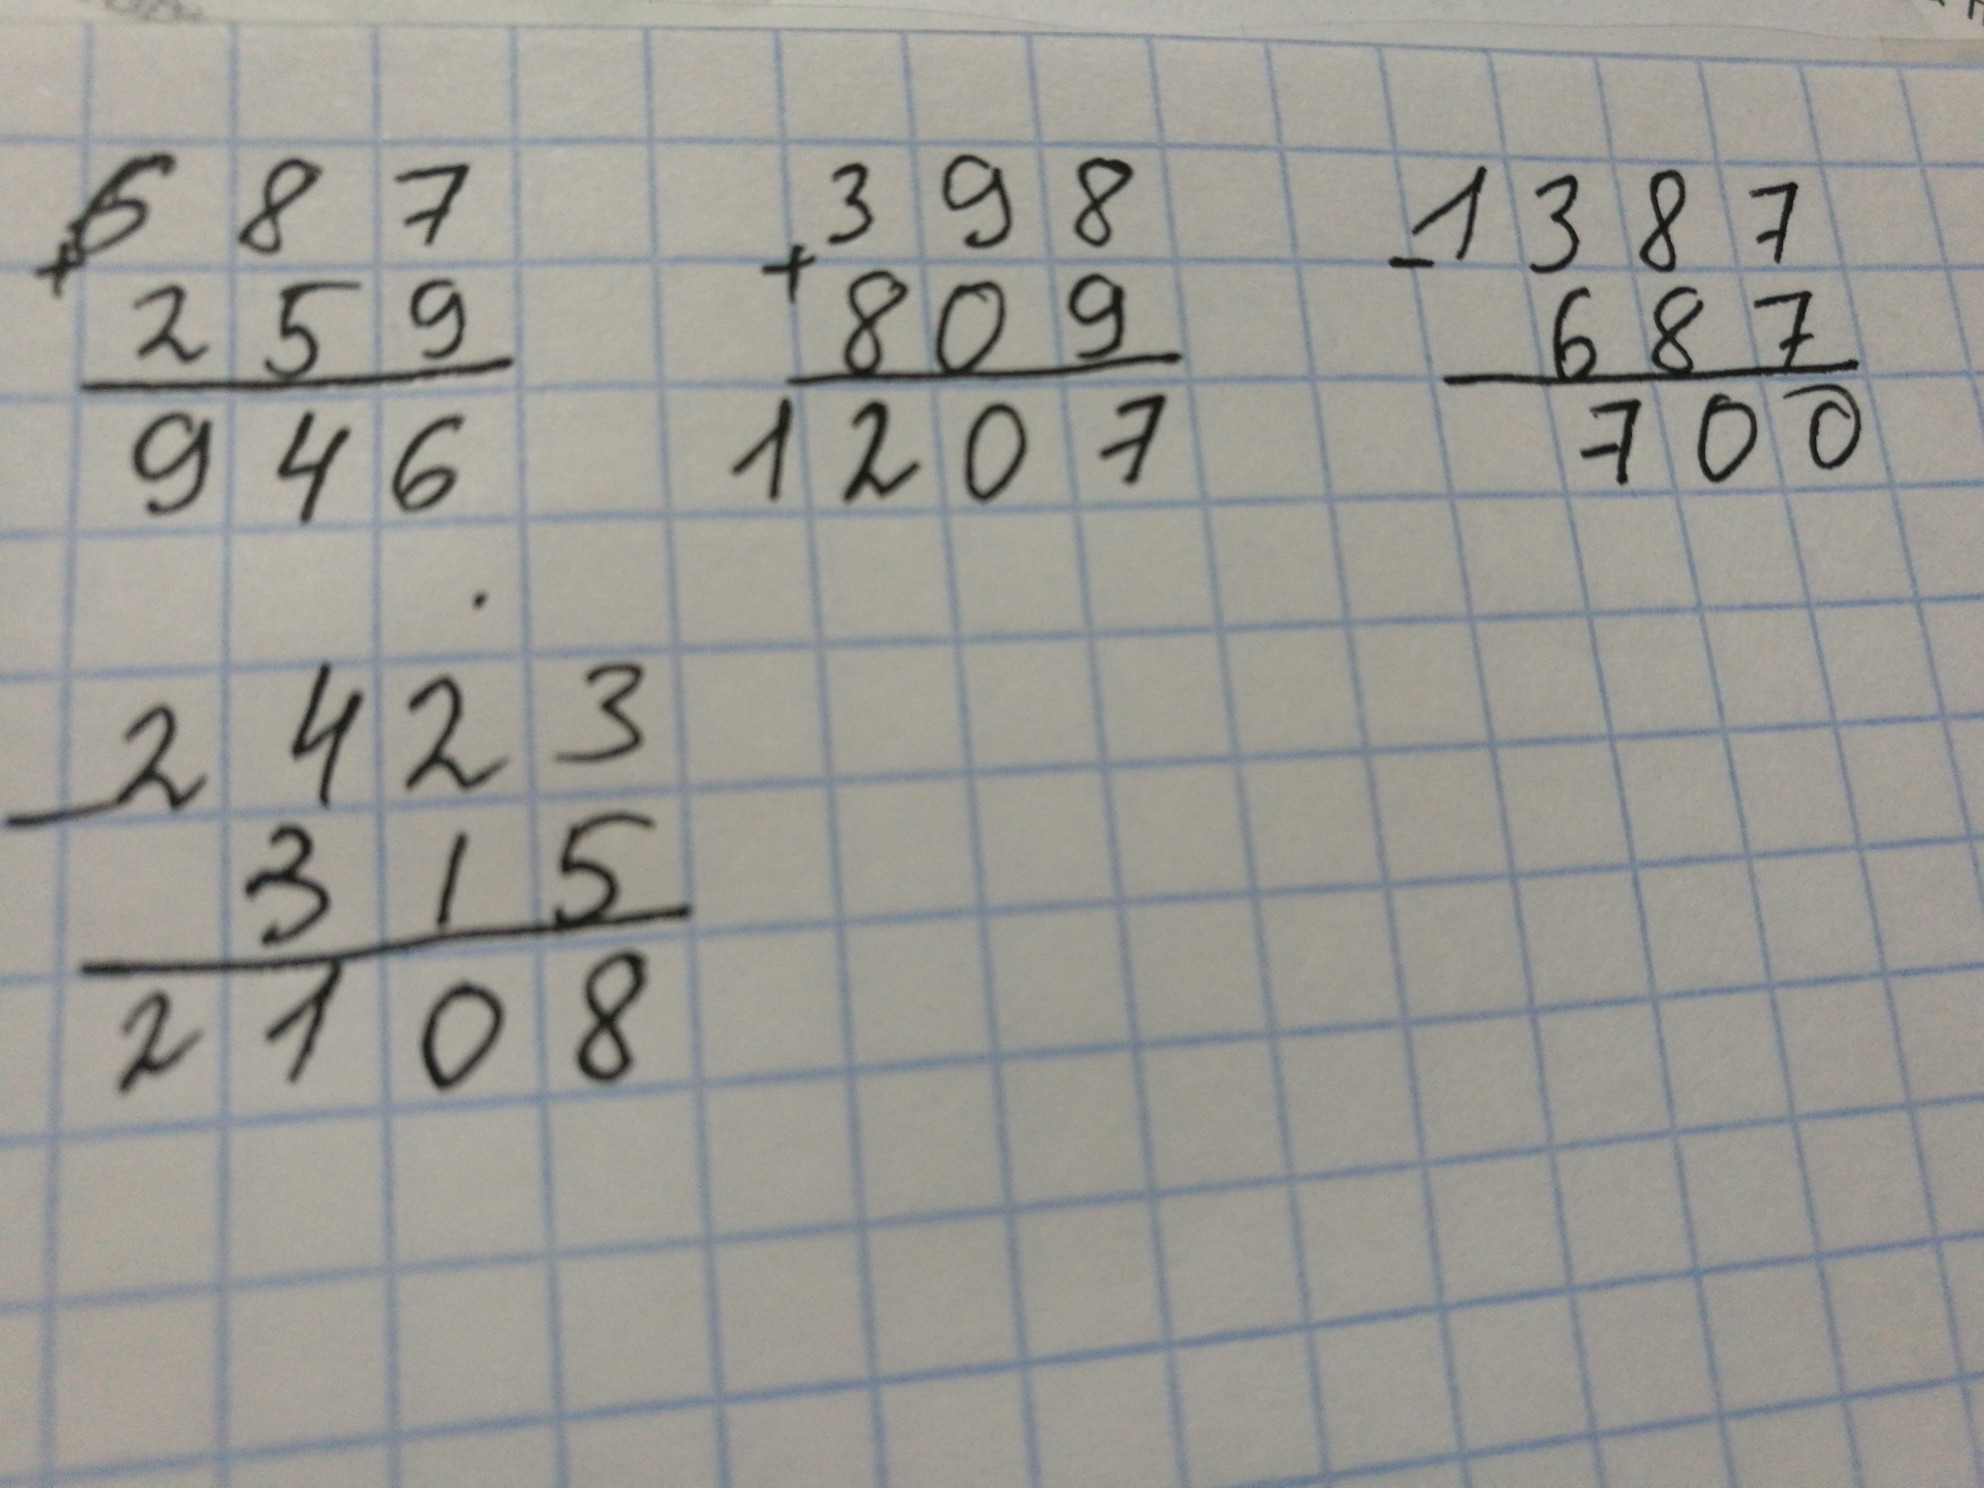 687
+
259
946
398
+
809
1207
- 1387
687
700
- 2423
315
2108